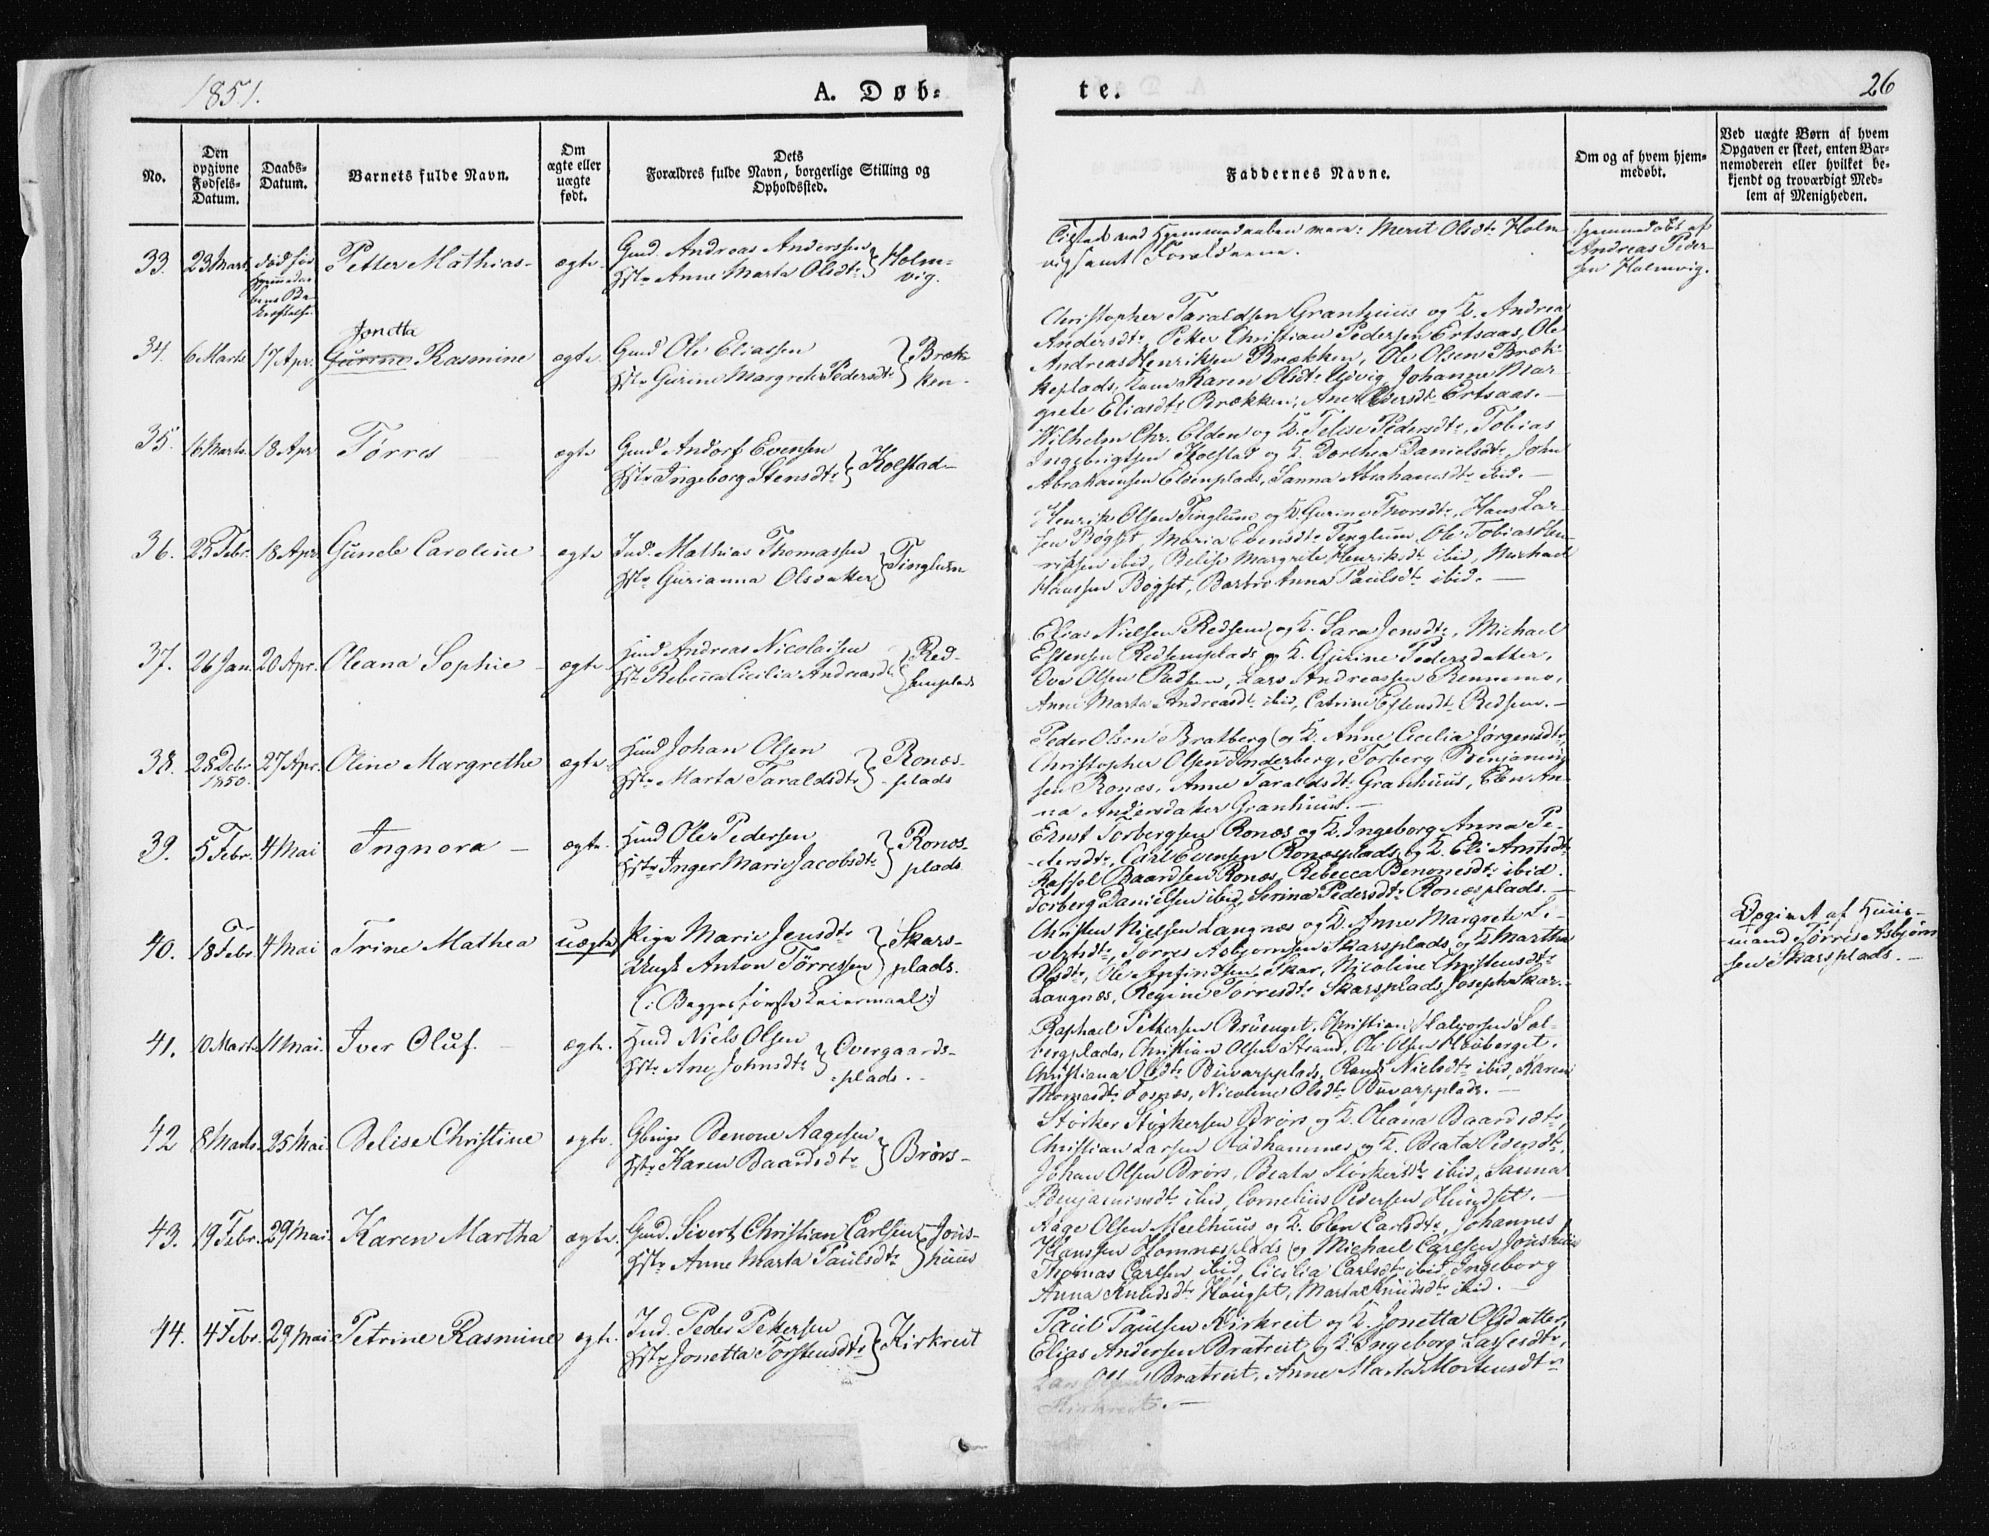 1851.
A. Døb-
te.
26
No.
Den opgivne Fødsels-Datum.
Daabs-Datum.
Barnets fulde Navn.
Om ægte eller uægte født.
Dets Forældres fulde Navn, borgerlige Stilling og Opholdssted.
Faddernes Navne.
Om og af hvem hjem-
medøbt.
Ved uægte Børn af hvem
Opgaven er skeet, enten Bar-
nemoderen eller hvilket be-
kjendt og troværdigt Med-
lem af Menigheden.
33. 23 Marts død før Petter Mathias ægte. Gmd. Andreas Anderssen
Hst. Anne Marta Olsdtr Holm-
vig.
Tilstede ved Hjemmedaaben vare: Merit Olsdtr Holm-
vig samt Forældrene.
Hjemmedøbt af
Andreas Peder-
sen Holmvig.
Jonetta
34. 6 Marts 17 Apr. Rasmine ægte. Gmd Ole Eliassen
Hst. Gurine Margrete Pedersdtr Bræk-
ken.
Christopher Taraldsen Granhuus og K. Andrea
Andersdtr, Petter Christian Pedersen Ertsaas, Ole
Andreas Henriksen Brækken, Ole Olsen Bræk-
keplads, Karen Olsdtr Utvig, Johanne Mar-
grete Eliasdtr Brækken, Ane Pedersdtr Ertsaas.
35. 16 Marts 18 Apr Tørres ægte Gmd Andorf Evensen
Hst. Ingeborg Stensdtr Kolstad
Wilhelm Chr. Elden og K. Pedersdtr, Tobias
Ingebrigtsen Kolstad og K. Dorthea Danielsdtr, John
Abrahamsen Eldenplads, Sanna Abrahamsdtr ibid.
36. 25 Febr. 18 Apr Gunele Caroline ægte Ind. Mathias Thomassen
Hst. Gurianna Olsdatter Tinglum
Henrik Olsen Tinglum og K. Gurine Thorsdtr, Hans Lar-
sen Bøgset, Maria Evensdtr Tinglum, Ole Tobias Hen-
riksen ibid, Belise Margrite Henriksdtr ibid, Michael
Hanssen Bøgset, Anna Paulsdtr ibid.
37. 26 Jan. 20 Apr. Oleana Sophie ægte Hmd Andreas Nicolaisen
Hst. Rebecca Cicilia Andreasdtr Red-
semplads
Elias Nielsen Redsem og K. Sara Jensdtr, Michael
Estensen Redsemplads og K. Gjurine Pedersdatter,
Ove Olsen Redsem, Lars Andreassen Rennemo,
Anne Marta Andreasdtr ibid, Catrine Estensdtr Redsem.
38. 25 Debr 1850. 27 Apr. Oline Margrethe ægte Hmd Johan Olsen
Hst. Marta Taraldsdtr Ronæs-
plads
Peder Olsen Bratberg og K. Anne Cecilia Jørgensdtr,
Christopher Olsen Anderberg, Torberg Benjamin-
sen Ronæs, Anne Taraldsdtr Granhuus, Elen An-
na Andersdatter Granhuus.
39. 5 Febr. 4 Mai Ingnora ægte. Hmd Ole Pedersen
Hst. Inger Marie Jacobsdtr Ronæs-
plads
Ernst Torbergsen Ronæs og K. Ingeborg Anna Pe-
dersdtr, Carl Evensen Ronæsplads og K. Eli Arntsdtr
Baardsen Ronæs, Rebecca Benonesdtr ibid.
Torberg Danielsen ibid, Serina Pedersdtr Ronæsplads.
40. 18 Febr. 4 Mai Trine Mathea uægte Pige Marie Jensdtr
Ungk. Anton Tørressen Skars-
plads.
(: Begges første Leiermaal :)
Christen Nielsen Langnes og K. Anne Margrete Si-
vertsdtr, Tørres Asbjørnsen Skarsplads og K. Martha
Olsdtr, Ole Arnfindsen Skar, Nicoline Christensdtr
Langnæs, Regine Tørresdtr Skarsplads, Joseph Skar.
Opgivet af Huus-
mand Tørres Asbjørn-
sen Skarsplads.
41. 10 Marts 11 Mai. Iver Oluf. ægte. Hmd Niels Olsen
Hst. Ane Johnsdtr Overgaards-
plads.
Raphael Pettersen Bruenget, Christian Halvorsen Sol-
bergplads, Christian Olsen Strand, Ole Olsen Houberget,
Christiana Olsdtr Buvarpplads, Randi Nielsdtr ibid, Karen
Thomasdtr Fosnæs, Nicoline Olsdtr Buvarpplads.
42 8 Marts. 25 Mai. Belise Christine ægte. Gbrug. Benone Aagesen
Hst. Karen Baardsdtr Brørs
Størker Størkersen Brørs og K. Oleana Baardsdtr,
Christian Larsen Rødhammer og K. Beata Pedersdtr,
Johan Olsen Brørs, Beata Størkersdtr ibid, Sanna
Benjaminsdtr ibid, Cornelius Pedersen Hundset.
43. 19 Febr. 29 Mai Karen Martha ægte. Gmd. Sivert Christian Carlsen
Hst. Anne Marta Paulsdtr Jøns-
huus
Aage Olsen Meelhuus og K. Elen Carlsdtr, Johannes
Hanssen Homnesplads og Michael Carlsen Jønshuus
Thomas Carlsen ibid, Cicilia Carlsdtr ibid, Ingeborg
Anna Knudsdtr Haugset, Marta Knudsdtr ibid.
44. 4 Febr. 29 Mai Petrine Rasmine ægte. Ind. Peder Pettersen
Hst. Jonetta Torstensdtr Kirkreit
Paul Paulsen Kirkreit og K. Jonetta Olsdatter,
Elias Andersen Bratreit og K. Ingeborg Larsesdtr,
Lars Olsen Bratreit, Anne Marta Mortensdtr
Kirkreit.